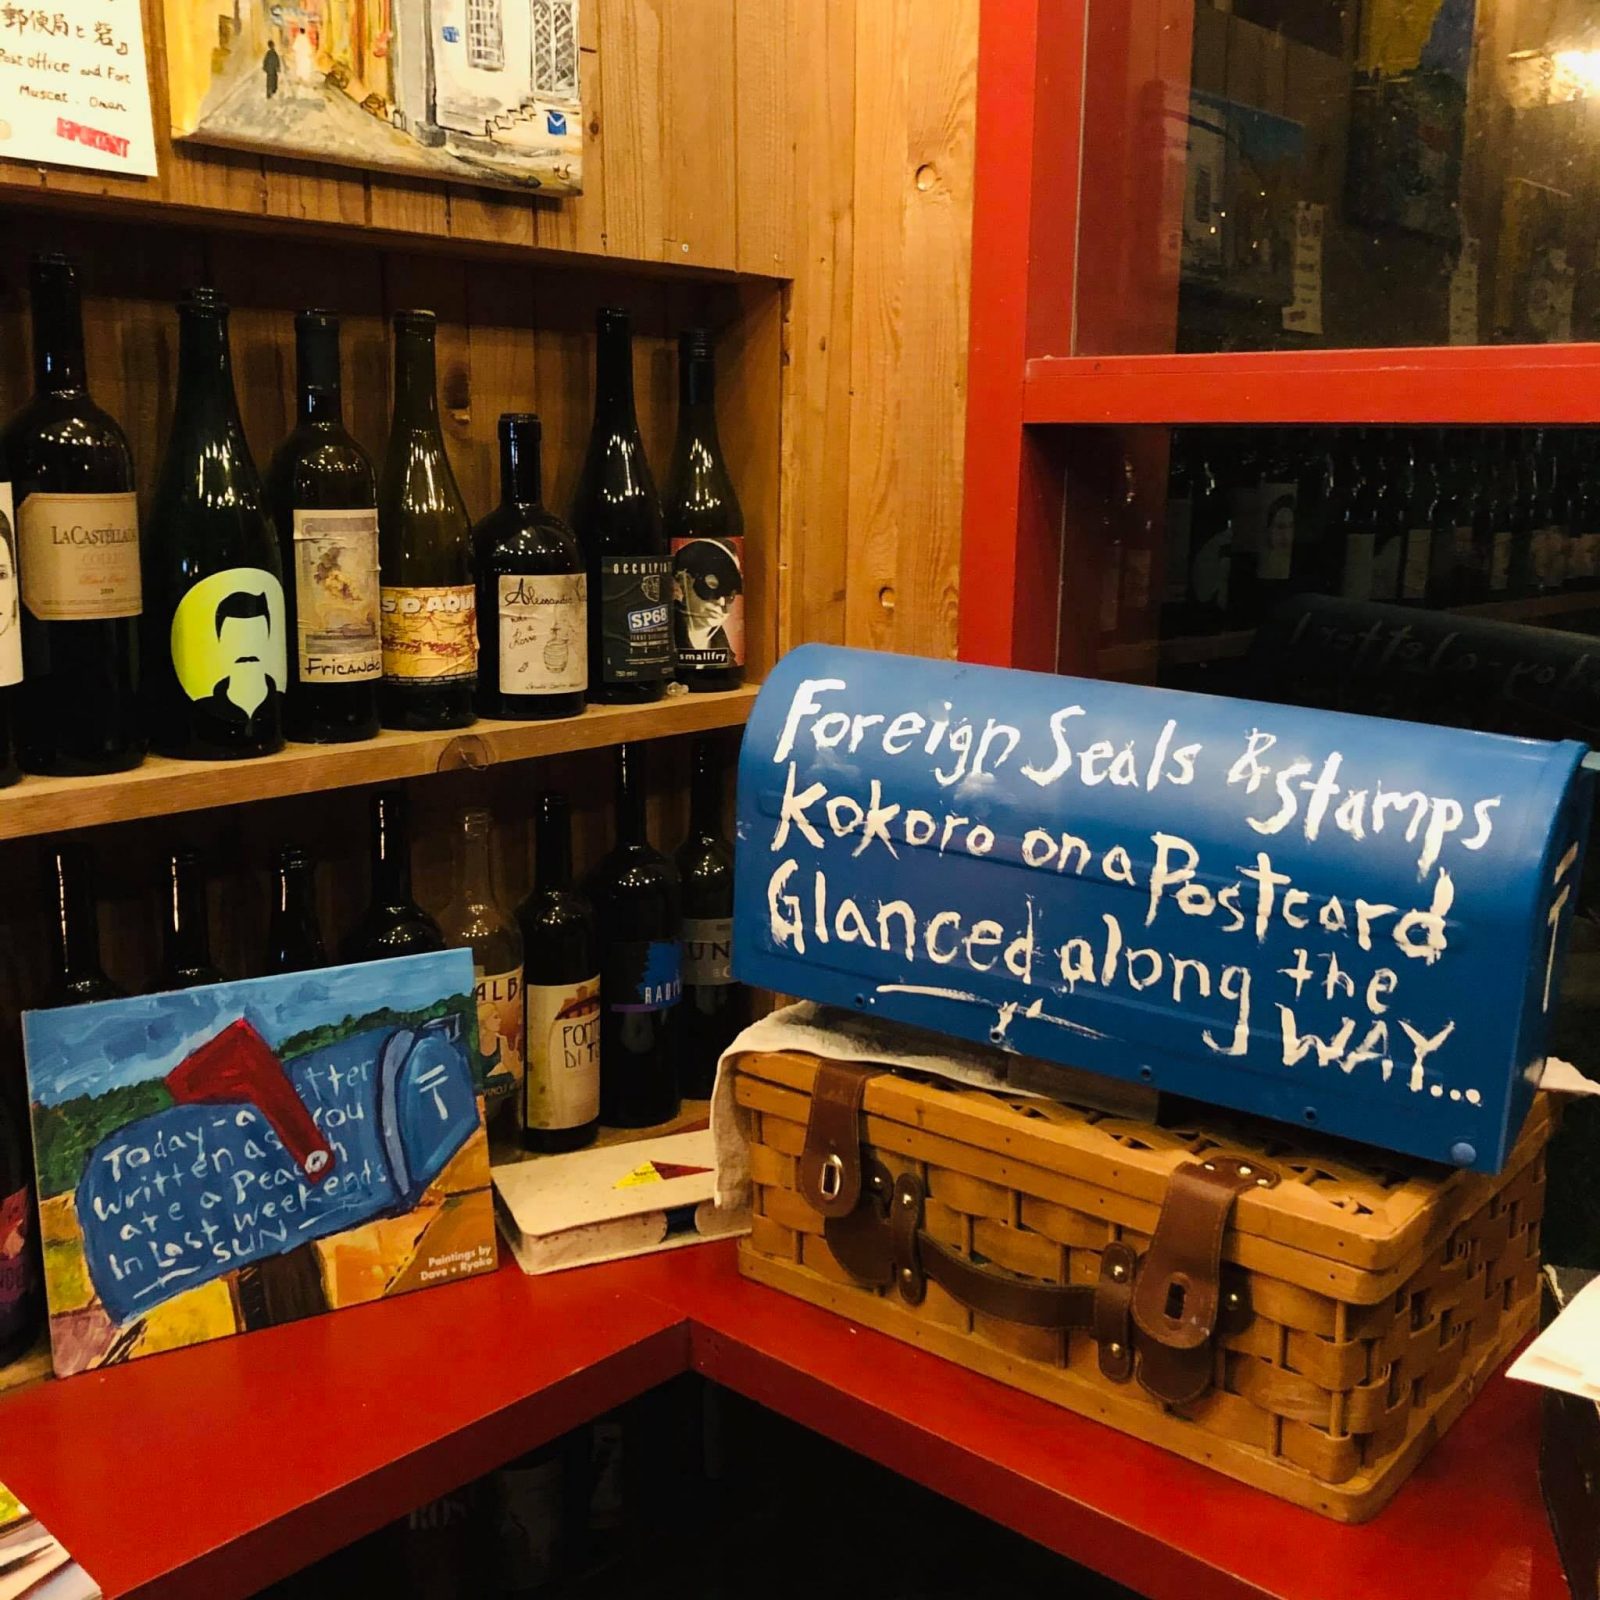 郵便局と砦』
Post office and Fort
Muscat . Oman
IMPORTANT
LACASTELLADA
COLLIO
2009
Fricandò
Alessandro
OCCULPIN
SP68
smallfry
Foreign Seals & Stamps
Kokoro on a Postcard
Glanced along the
WAY...
〒
Today - a Letter
Written as you
ate a Peach
In Last Weekends
SUN
〒
Paintings by
Dave + Ryoko
ALB
PONT
DI T
RAD
UN